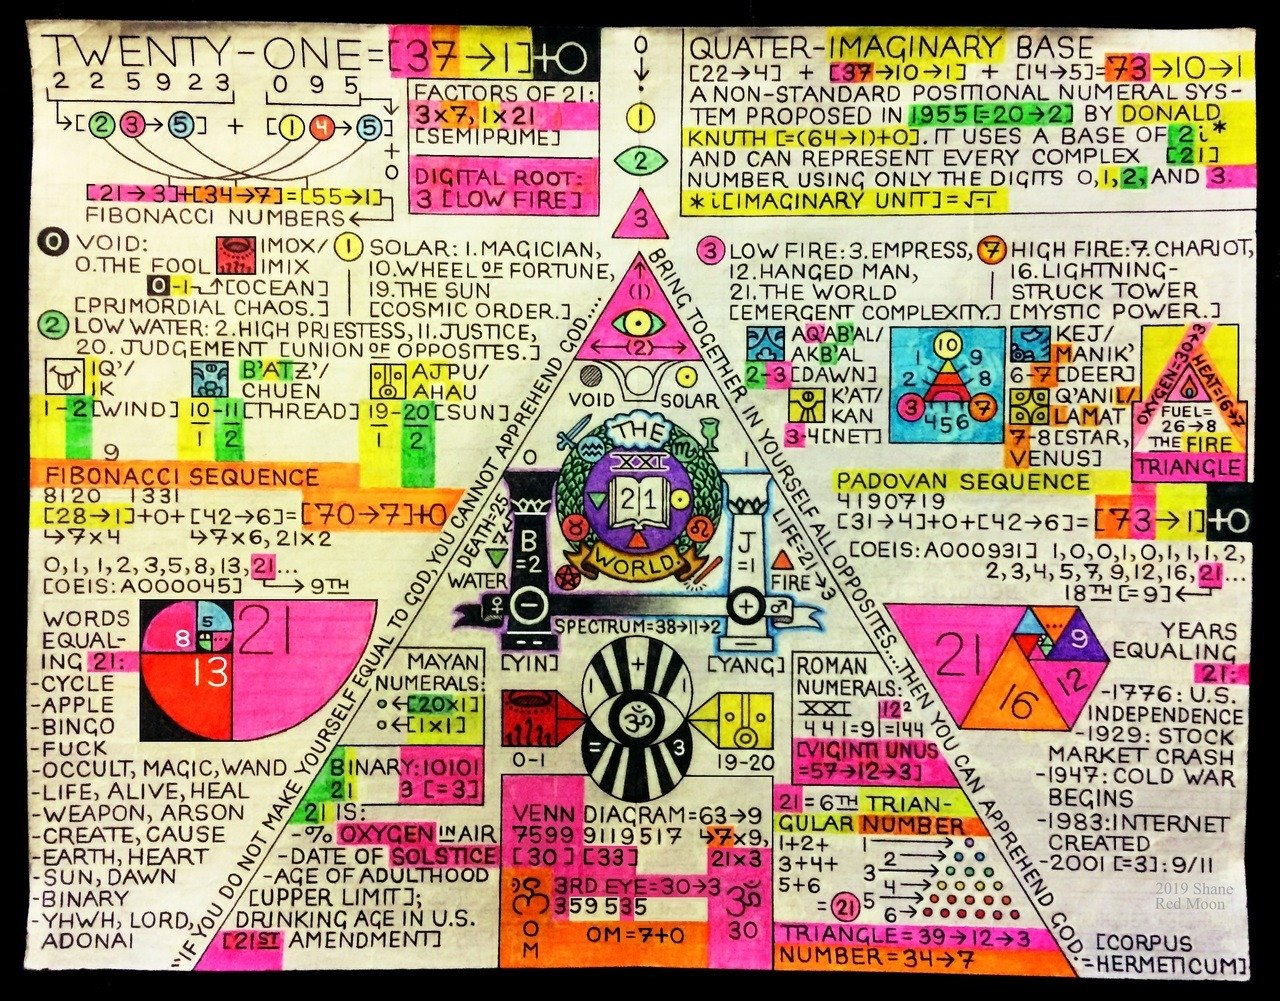 TWENTY-ONE=[37→1]+0
2 2 5 9 2 3 0 9 5
→[2 3→5] + [1 4→5]
+
0
[21→3]+[34→7]=[55→1]
FIBONACCI NUMBERS
FACTORS OF 21:
3x7, 1x21
[SEMIPRIME]
DIGITAL ROOT:
3 [LOW FIRE]
0
1
2
3
QUATER-IMAGINARY BASE
[22→4] + [37→10→1] + [14→5]=73→10→1
A NON-STANDARD POSITIONAL NUMERAL SYS-
TEM PROPOSED IN 1955[=20→2] BY DONALD
KNUTH [=(64→1)+0]. IT USES A BASE OF 2i*
AND CAN REPRESENT EVERY COMPLEX [21]
NUMBER USING ONLY THE DIGITS 0,1,2, AND 3.
*i[IMAGINARY UNIT]=√-1
0 VOID:
0.THE FOOL
IMOX/
IMIX
0-1→[OCEAN]
[PRIMORDIAL CHAOS.]
1 SOLAR: 1.MAGICIAN,
10.WHEEL OF FORTUNE,
19.THE SUN
[COSMIC ORDER.]
2 LOW WATER: 2.HIGH PRIESTESS, 11.JUSTICE,
20. JUDGEMENT [UNION OF OPPOSITES.]
IQ'/
IK
1-2[WIND]
B'ATZ'/
CHUEN
10-11[THREAD]
1 2
AJPU/
AHAU
19-20[SUN]
1 2
3 LOW FIRE: 3.EMPRESS,
12.HANGED MAN,
21.THE WORLD
[EMERGENT COMPLEXITY.]
7 HIGH FIRE: 7. CHARIOT,
16. LIGHTNING-
STRUCK TOWER
[MYSTIC POWER.]
AQ'AB'AL/
AKB'AL
2-3[DAWN]
K'AT/
KAN
3-4[NET]
10
1 9
2 8
3 7
456
KEJ/
MANIK'
6-7[DEER]
Q'ANIL/
LAMAT
7-8[STAR,
VENUS]
OXYGEN=30→3
HEAT=16→7
FUEL=
26→8
THE FIRE
TRIANGLE
9
FIBONACCI SEQUENCE
8120 1331
[28→1]+0+[42→6]=[70→7]+0
↳7x4 ↳7x6, 21x2
0,1,1,2,3,5,8,13,21...
[OEIS: A000045] →9TH
PADOVAN SEQUENCE
4190719
[31→4]+0+[42→6]=[73→1]+0
[OEIS: A000931] 1,0,0,1,0,1,1,1,2,
2,3,4,5,7,9,12,16,21...
18TH[=9]
"IF YOU DO NOT MAKE YOURSELF EQUAL TO GOD, YOU CANNOT APPREHEND GOD...
BRING TOGETHER IN YOURSELF ALL OPPOSITES...THEN YOU CAN APPREHEND GOD."
[CORPUS
=HERMETICUM]
(1)
(2)
VOID SOLAR
0 1
DEATH=25→7
WATER
LIFE=21→3
FIRE
THE
XXI
21
WORLD.
B
=2
J
=1
SPECTRUM=38→11→2
[YIN] [YANG]
0-1 19-20
+
1 1
= 3
WORDS
EQUAL-
ING 21:
-CYCLE
-APPLE
-BINGO
-FUCK
-OCCULT, MAGIC, WAND
-LIFE, ALIVE, HEAL
-WEAPON, ARSON
-CREATE, CAUSE
-EARTH, HEART
-SUN, DAWN
-BINARY
-YHWH, LORD,
ADONAI
8 5 21
13
MAYAN
NUMERALS:
[20x1]
[1x1]
BINARY: 10101
21 3 [=3]
21 IS:
-% OXYGEN IN AIR
-DATE OF SOLSTICE
-AGE OF ADULTHOOD
[UPPER LIMIT];
DRINKING AGE IN U.S.
[21ST AMENDMENT]
VENN DIAGRAM=63→9
7599 9119517 ↳7x9,
[30] [33] 21x3
3RD EYE=30→3
359 535
OM=7+0
OM
ॐ
30
ROMAN
NUMERALS:
XXI 12²
441=9|=144
[VIGINTI UNUS
=57→12→3]
21=6TH TRIAN-
GULAR NUMBER
1+2+
3+4+
5+6
=21
1
2
3
4
5
6
TRIANGLE=39→12→3
NUMBER=34→7
21
16
12
9
YEARS
EQUALING
21:
-1776: U.S.
INDEPENDENCE
-1929: STOCK
MARKET CRASH
-1947: COLD WAR
BEGINS
-1983: INTERNET
CREATED
-2001 [=3]: 9/11
2019 Shane
Red Moon